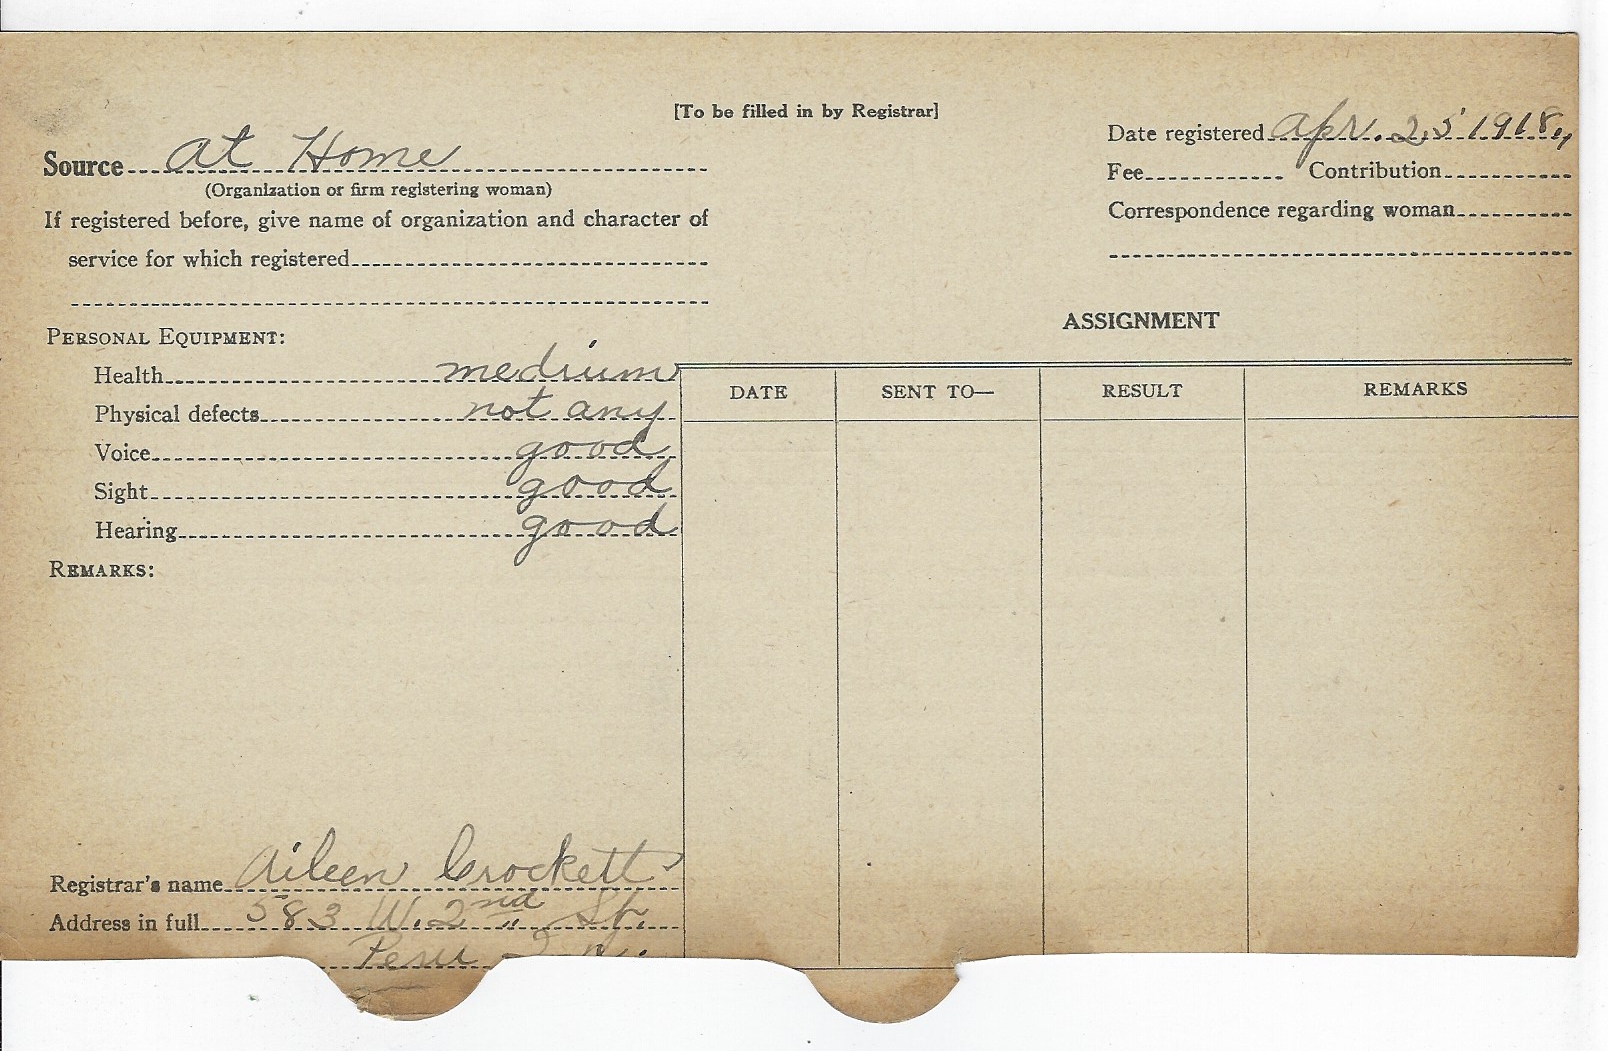 [To be filled in by Registrar]
Source at Home
(Organization or firm registering woman)
If registered before, give name of organization and character of
service for which registered
Date registered Apr. 25 1918.,
Fee Contribution
Correspondence regarding woman
PERSONAL EQUIPMENT:
Health medium
Physical defects not any
Voice good
Sight good
Hearing good
REMARKS:
ASSIGNMENT
DATE SENT TO— RESULT REMARKS
Registrar's name Aileen Crockett
Address in full 583 W. 2nd St.
Peru In.